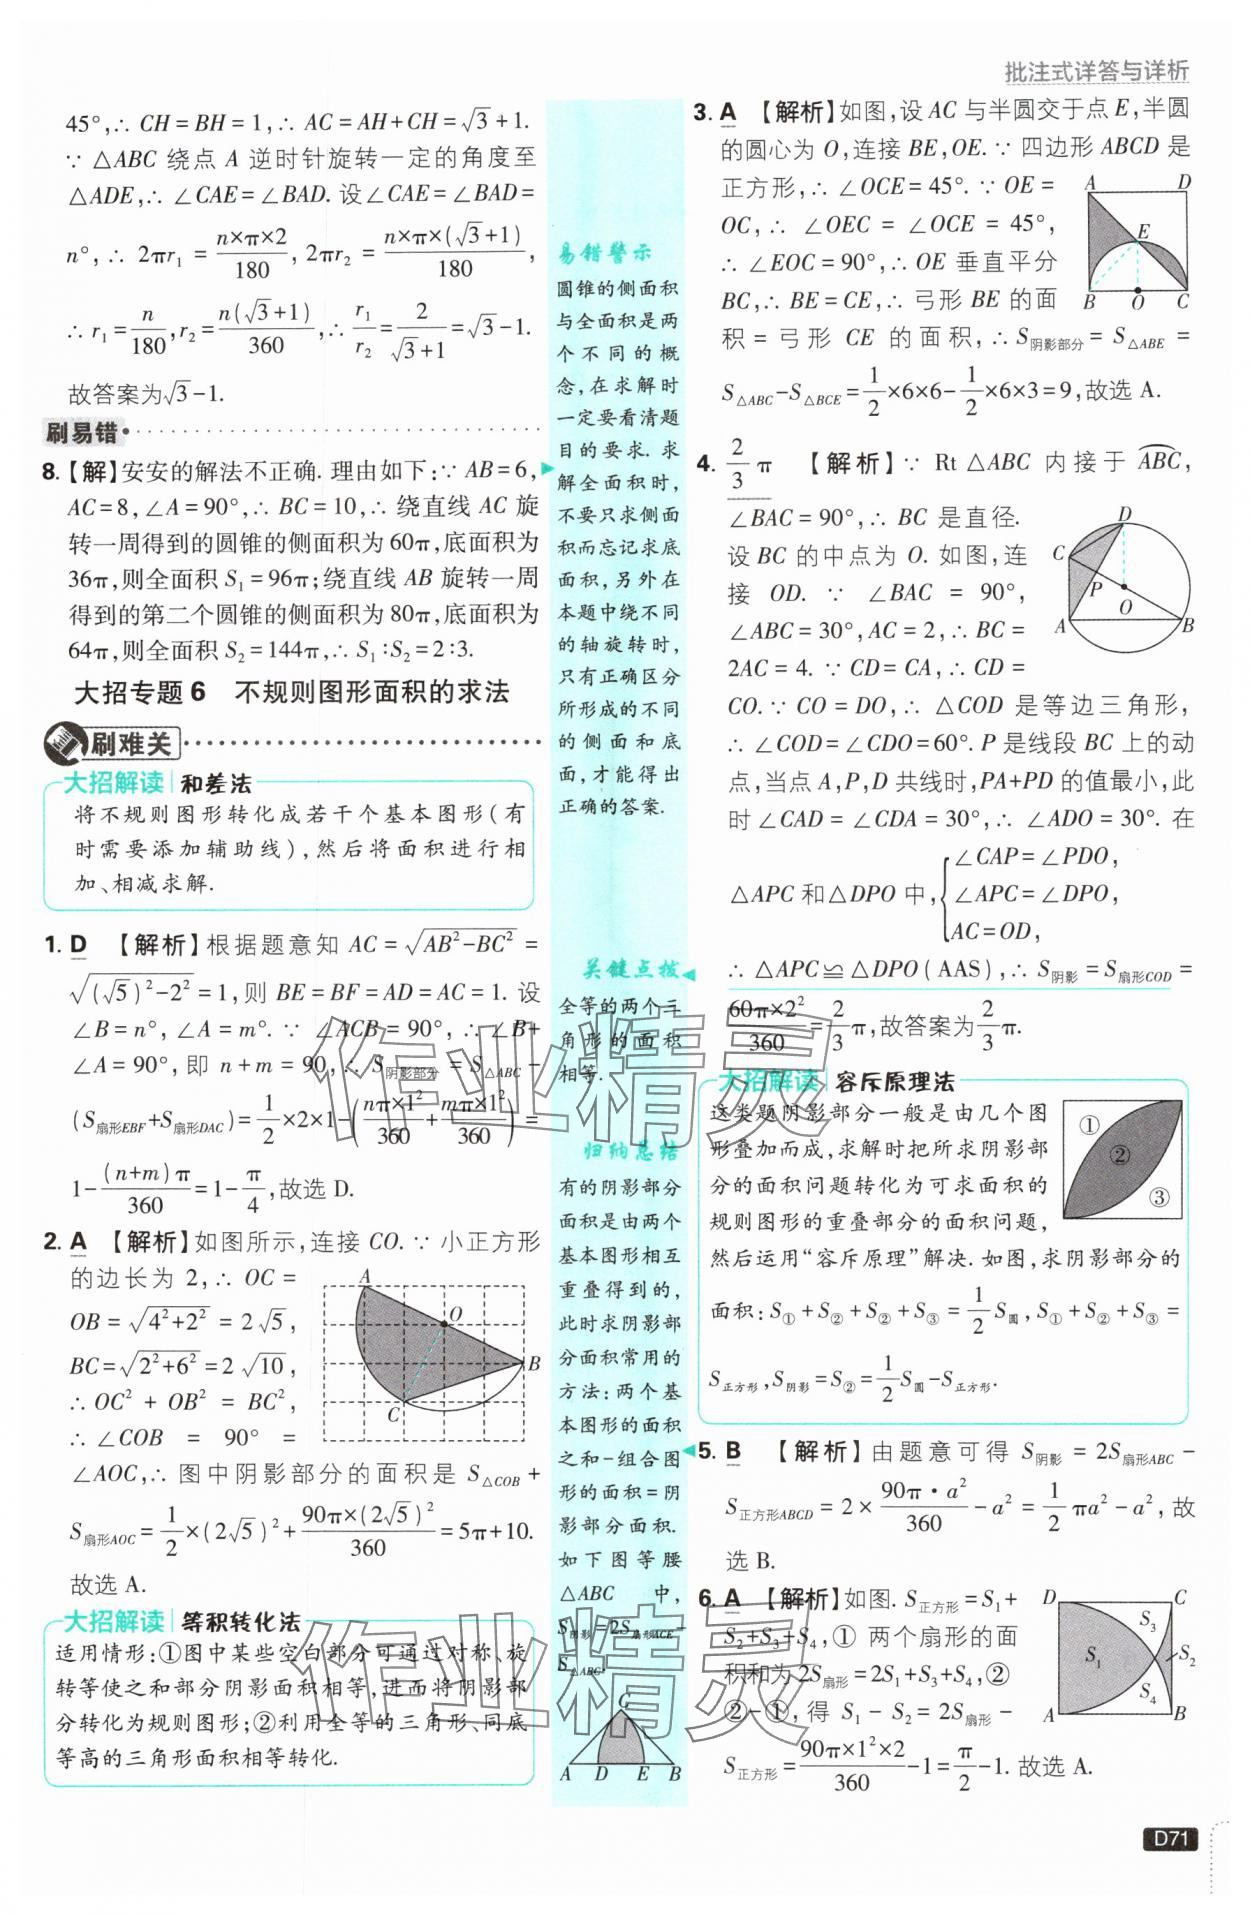 批注式详答与详析
45°,∴ CH=BH=1,∴ AC=AH+CH=√3+1.
∵ △ABC 绕点 A 逆时针旋转一定的角度至
△ADE,∴ ∠CAE=∠BAD. 设∠CAE=∠BAD=
n°,∴ 2πr₁ = n×π×2/180, 2πr₂ = n×π×(√3+1)/180,
∴ r₁=n/180,r₂=n(√3+1)/360,∴ r₁/r₂=2/(√3+1)=√3-1.
故答案为√3-1.
刷易错
8.【解】安安的解法不正确. 理由如下:∵ AB=6,
AC=8,∠A=90°,∴ BC=10,∴ 绕直线 AC 旋
转一周得到的圆锥的侧面积为 60π,底面积为
36π,则全面积 S₁=96π;绕直线 AB 旋转一周
得到的第二个圆锥的侧面积为 80π,底面积为
64π,则全面积 S₂=144π,∴ S₁:S₂=2:3.
大招专题 6 不规则图形面积的求法
刷难关
大招解读|和差法
将不规则图形转化成若干个基本图形(有
时需要添加辅助线),然后将面积进行相
加、相减求解.
1. D 【解析】根据题意知 AC=√(AB²-BC²) =
√((√5)²-2²)=1,则 BE=BF=AD=AC=1. 设
∠B=n°,∠A=m°. ∵ ∠ACB=90°,∴ ∠B+
∠A=90°,即 n+m=90,∴ S阴影部分=S△ABC-
(S扇形EBF+S扇形DAC)=1/2×2×1-(nπ×1²/360+mπ×1²/360)=
1-(n+m)π/360=1-π/4,故选 D.
2. A 【解析】如图所示,连接 CO. ∵ 小正方形
的边长为 2,∴ OC=
OB=√(4²+2²)=2√5,
BC=√(2²+6²)=2√10,
∴ OC²+OB²=BC²,
∴ ∠COB = 90° =
∠AOC,∴ 图中阴影部分的面积是 S△COB+
S扇形AOC=1/2×(2√5)²+90π×(2√5)²/360=5π+10.
故选 A.
A
O
B
C
大招解读|等积转化法
适用情形:①图中某些空白部分可通过对称、旋
转等使之和部分阴影面积相等,进而将阴影部
分转化为规则图形;②利用全等的三角形、同底
等高的三角形面积相等转化.
易错警示
圆锥的侧面积
与全面积是两
个不同的概
念,在求解时
一定要看清题
目的要求. 求
解全面积时,
不要只求侧面
积而忘记求底
面积,另外在
本题中绕不同
的轴旋转时,
只有正确区分
所形成的不同
的侧面和底
面,才能得出
正确的答案.
关键点拨
全等的两个三
角形的面积
相等.
归纳总结
有的阴影部分
面积是由两个
基本图形相互
重叠得到的,
此时求阴影部
分面积常用的
方法:两个基
本图形的面积
之和-组合图
形的面积=阴
影部分面积.
如下图等腰
△ABC 中,
S阴影=2S扇形ACE-
S△ABC.
C
A D E B
3. A 【解析】如图,设 AC 与半圆交于点 E,半圆
的圆心为 O,连接 BE,OE. ∵ 四边形 ABCD 是
正方形,∴ ∠OCE=45°. ∵ OE=
OC,∴ ∠OEC=∠OCE=45°,
∴ ∠EOC=90°,∴ OE 垂直平分
BC,∴ BE=CE,∴ 弓形 BE 的面
积=弓形 CE 的面积,∴ S阴影部分=S△ABE=
S△ABC-S△BCE=1/2×6×6-1/2×6×3=9,故选 A.
A D
E
B O C
4. 2/3 π 【解析】∵ Rt △ABC 内接于 ABC,
∠BAC=90°,∴ BC 是直径.
设 BC 的中点为 O. 如图,连
接 OD. ∵ ∠BAC=90°,
∠ABC=30°,AC=2,∴ BC=
2AC=4. ∵ CD=CA,∴ CD=
CO. ∵ CO=DO,∴ △COD 是等边三角形,
∴ ∠COD=∠CDO=60°. P 是线段 BC 上的动
点,当点 A,P,D 共线时,PA+PD 的值最小,此
时∠CAD=∠CDA=30°,∴ ∠ADO=30°. 在
△APC 和△DPO 中,{∠CAP=∠PDO,
∠APC=∠DPO,
AC=OD,
∴ △APC≌△DPO(AAS),∴ S阴影=S扇形COD=
60π×2²/360=2/3π,故答案为2/3π.
D
C
P
O
A B
大招解读|容斥原理法
这类题阴影部分一般是由几个图
形叠加而成,求解时把所求阴影部
分的面积问题转化为可求面积的
规则图形的重叠部分的面积问题,
然后运用“容斥原理”解决. 如图,求阴影部分的
面积:S①+S②+S②+S③=1/2S圆,S①+S②+S③=
S正方形,S阴影=S②=1/2S圆-S正方形.
①
②
③
5. B 【解析】由题意可得 S阴影=2S扇形ABC-
S正方形ABCD=2×90π·a²/360-a²=1/2πa²-a²,故
选 B.
6. A 【解析】如图. S正方形=S₁+
S₂+S₃+S₄,① 两个扇形的面
积和为 2S扇形=2S₁+S₃+S₄,②
②-①,得 S₁-S₂=2S扇形-
S正方形=90π×1²×2/360-1=π/2-1. 故选 A.
D C
S₃
S₁ S₂
S₄
A B
作业精灵
作业精灵
D71